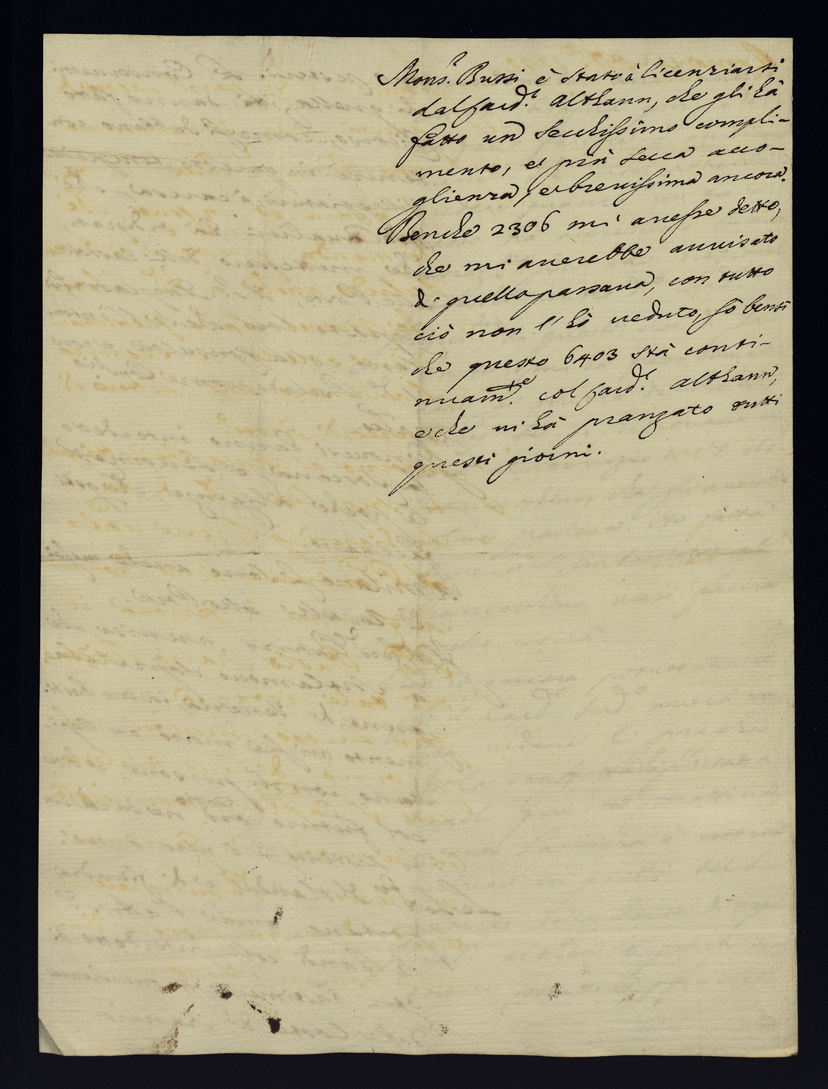 Mons.r Bussi è stato à licenziarsi
dal Card.l Althann, che gli hà
fatto un secchissimo compli-
mento, et più secca acco-
glienza, e brevissima ancora.
Benche 2306 mi avesse detto,
che mi averebbe avvisato
di quello passava, con tutto
ciò non l'hò veduto, sò bensi
che questo 6403 stà conti-
nuam.te col Card.l Althann,
e che vi hà pranzato tutti
questi giorni.